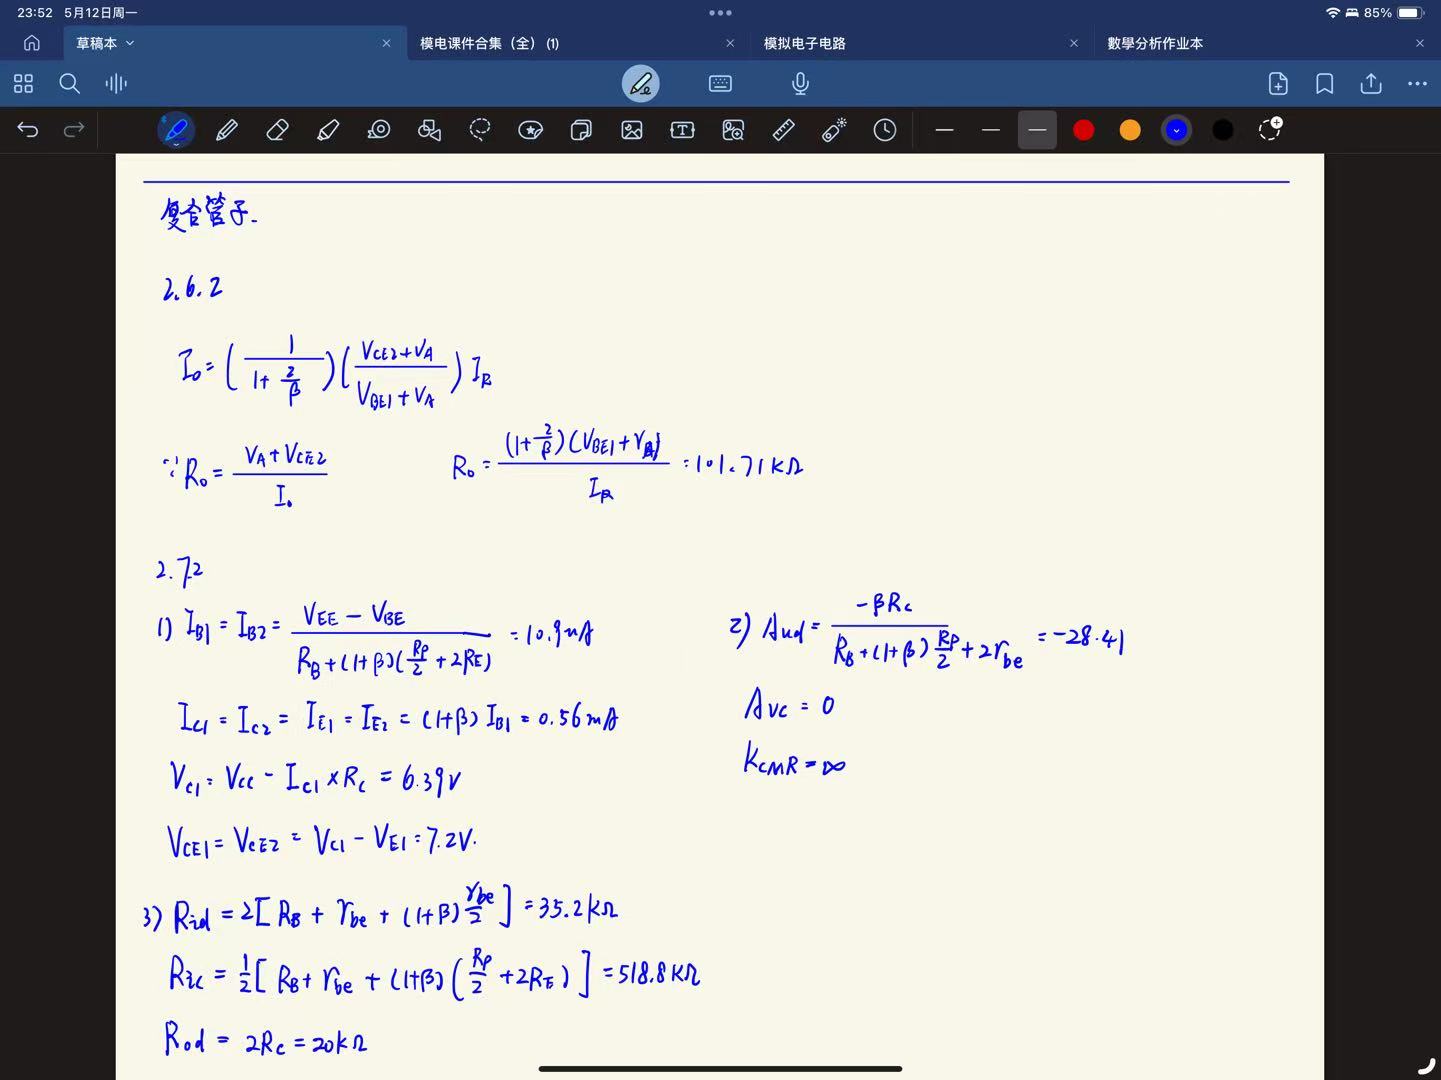 23:52 5月12日周一
85%
草稿本
模电课件合集（全） (1)
模拟电子电路
數學分析作业本
复合管子.
2.6.2
I₀ = (1 / (1 + 2/β)) ((V_CE2 + V_A) / (V_BE1 + V_A)) I_R
∵ R₀ = (V_A + V_CE2) / I₀
R₀ = (1 + 2/β)(V_BE1 + V_A) / I_R = 101.71KΩ
2.7.2
1) I_B1 = I_B2 = (V_EE − V_BE) / (R_B + (1+β)(R_P/2 + 2R_E)) = 10.9uA
I_C1 = I_C2 = I_E1 = I_E2 = (1+β) I_B1 = 0.56mA
V_C1 = V_CC − I_C1 × R_C = 6.39V
V_CE1 = V_CE2 = V_C1 − V_E1 = 7.2V.
2) A_ud = −βR_c / (R_B + (1+β) R_P/2 + 2r_be) = −28.41
A_VC = 0
K_CMR = ∞
3) R_id = 2[R_B + r_be + (1+β) r_be/2] = 35.2KΩ
R_ic = 1/2 [R_B + r_be + (1+β)(R_P/2 + 2R_E)] = 518.8KΩ
R_od = 2R_C = 20KΩ